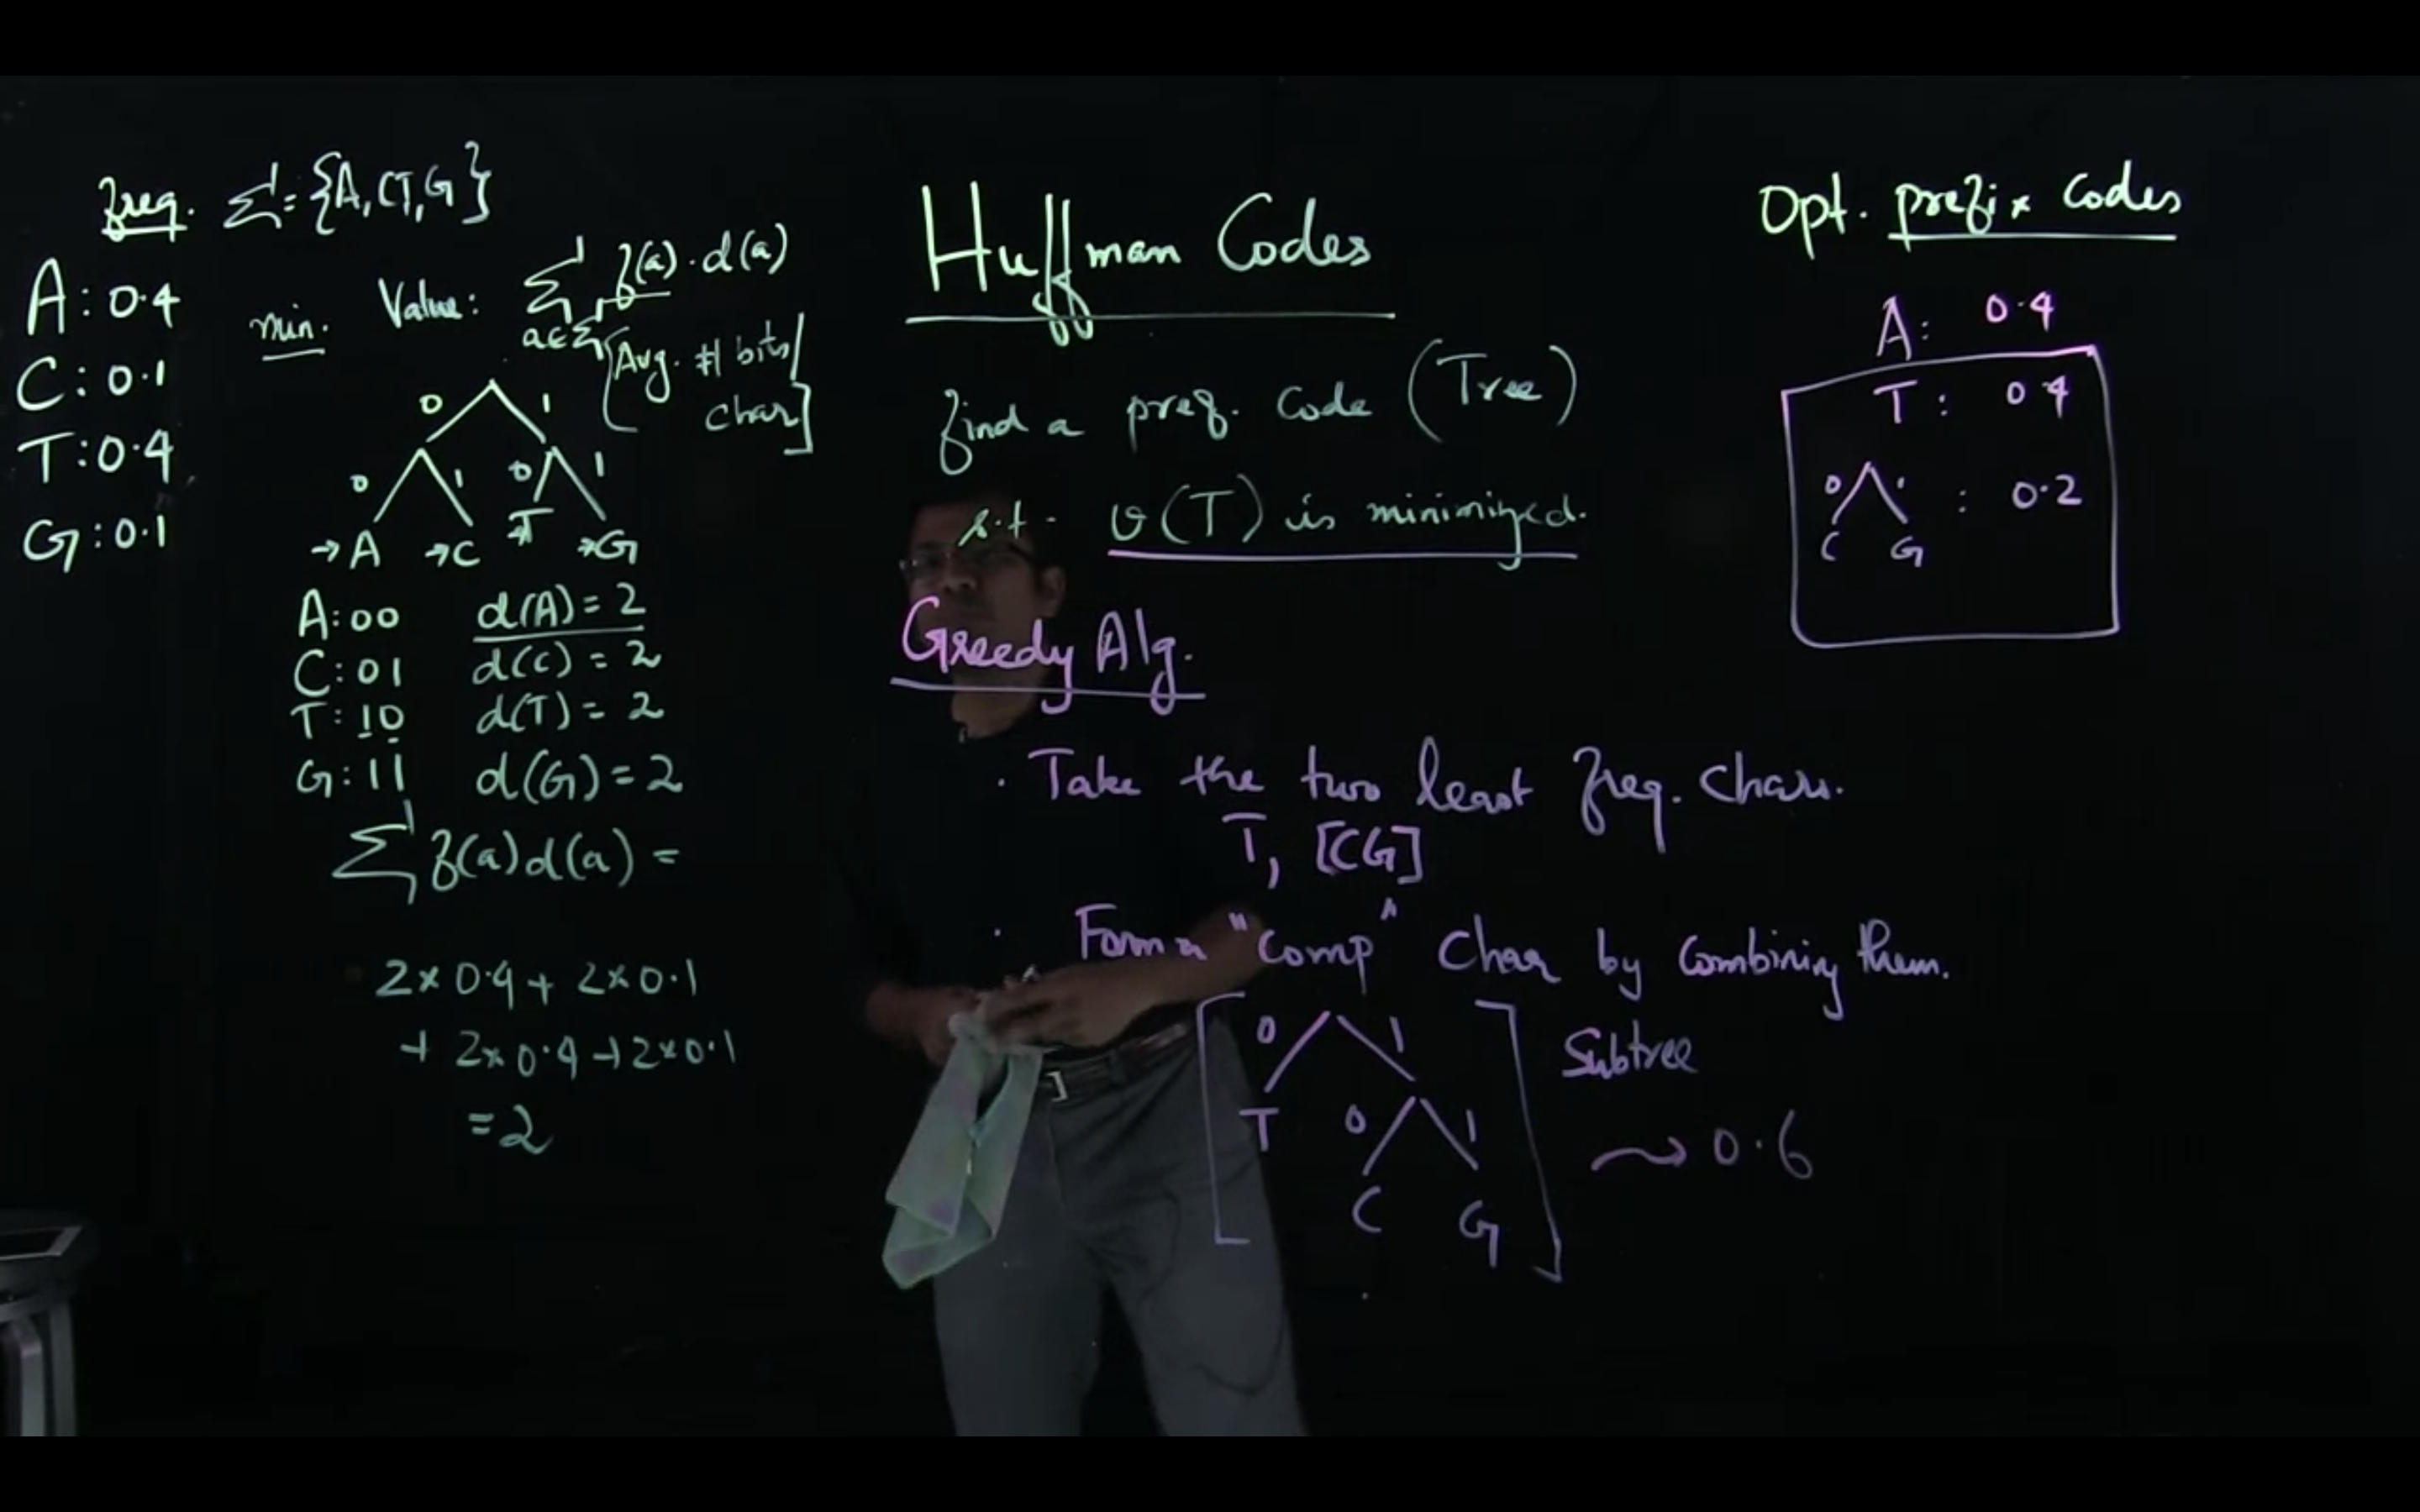 freq. Σ = {A,CT,G}
A: 0.4
C: 0.1
T: 0.4
G: 0.1
min. Value: Σ f(a)·d(a)
a∈Σ
[Avg. # bits/
char]
0 1
0 1 0 1
→A →C →T →G
A: 00 d(A) = 2
C: 01 d(C) = 2
T: 10 d(T) = 2
G: 11 d(G) = 2
Σ f(a)d(a) =
2 × 0.4 + 2 × 0.1
+ 2 × 0.4 + 2 × 0.1
= 2
Huffman Codes
find a pref. Code (Tree)
s.t. v(T) is minimized.
Greedy Alg.
· Take the two least freq. chars.
T, [CG]
· Form a "Comp" Char by Combining them.
0 1
T 0 1
C G
Subtree
0.6
Opt. prefix Codes
A: 0.4
T: 0.4
0 1 : 0.2
C G